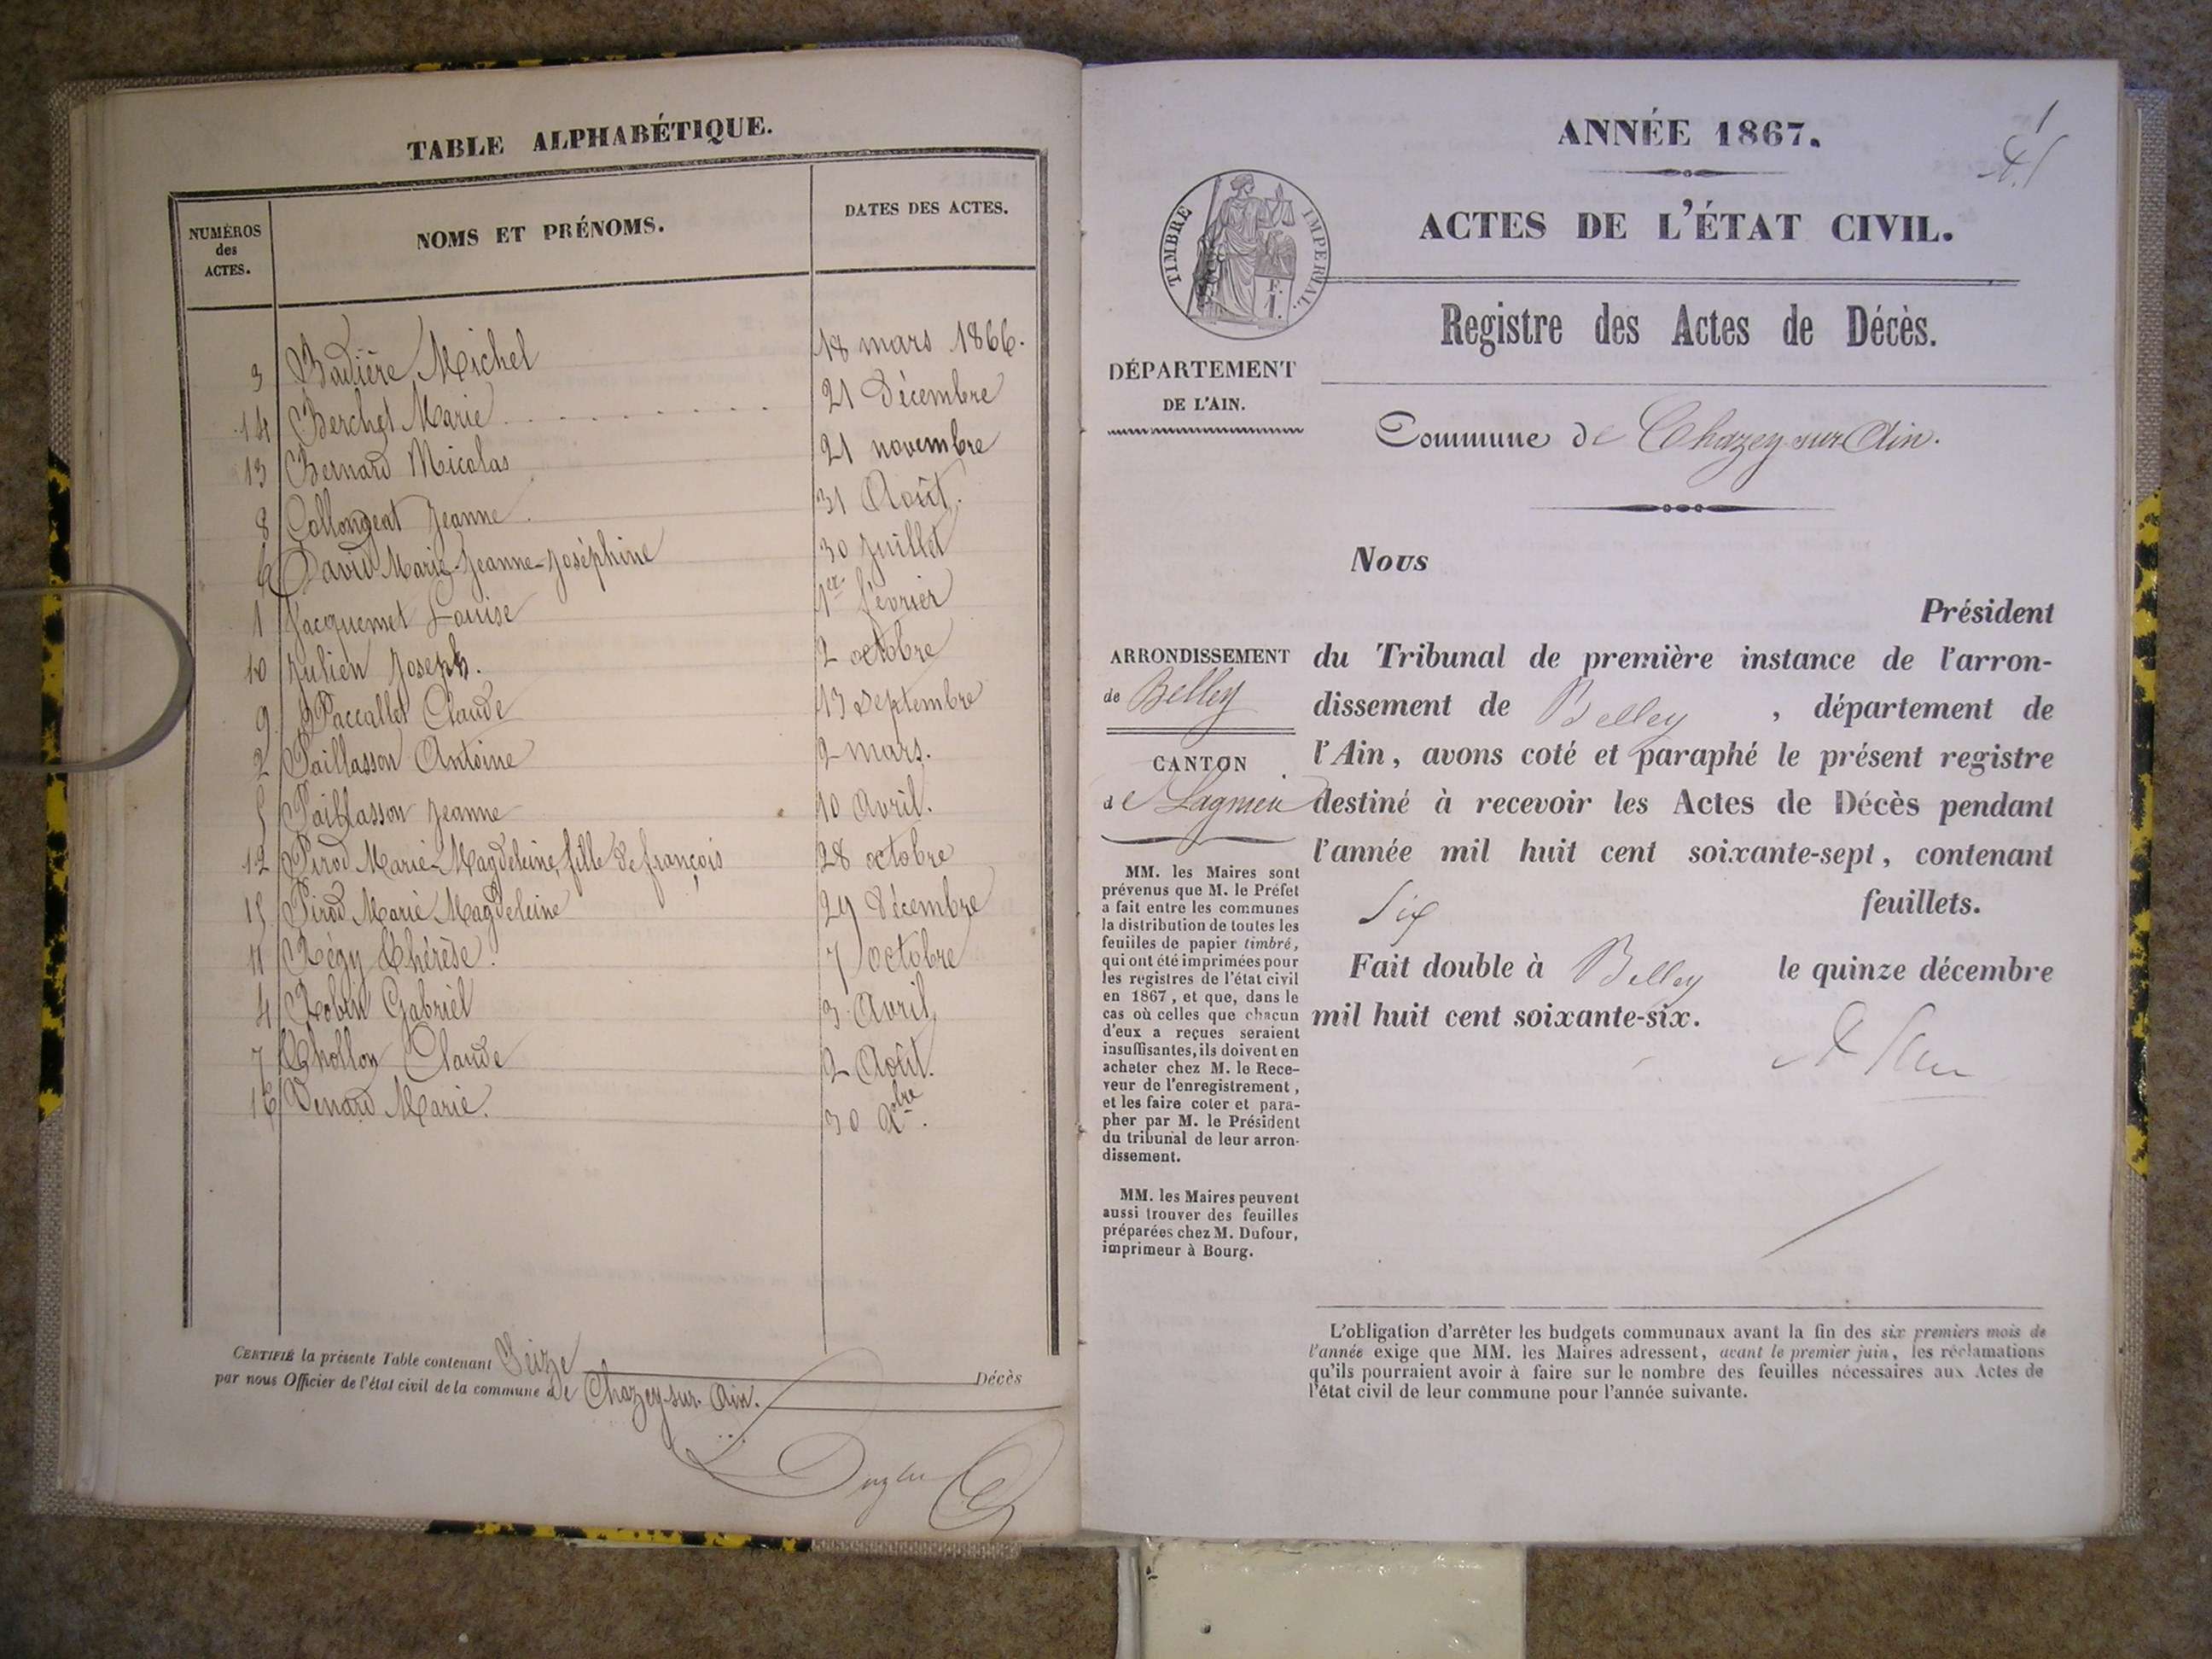 TABLE ALPHABÉTIQUE.
NUMÉROS des ACTES. NOMS ET PRÉNOMS. DATES DES ACTES.
3 Badière Michel 18 mars 1866.
14 Berchet Marie 21 Décembre
13 Bernard Nicolas 21 novembre
8 Collongeat Jeanne 31 Août.
6 David Marie-Jeanne-Joséphine 30 Juillet
1 Jacquemet Louise 1er février
10 Julien Joseph. 2 octobre
9 Paccallet Claude 13 septembre
2 Paillasson Antoine 2 mars.
5 Paillasson Jeanne 10 Avril.
12 Pirod Marie-Magdeleine, fille de françois 28 octobre
15 Pirod Marie Magdeleine 29 Décembre
11 Régy Thérèse. 7 octobre
4 Robin Gabriel 3 Avril
7 Thollon Claude 2 Août.
16 Venard Marie. 30 Xbre.
CERTIFIÉ la présente Table contenant Seize Décès
par nous Officier de l'état civil de la commune de Chazey-sur-Ain.
1
ANNÉE 1867.
ACTES DE L'ÉTAT CIVIL.
TIMBRE IMPERIAL.
1 F.
Registre des Actes de Décès.
DÉPARTEMENT
DE L'AIN.
Commune de Chazey-sur-Ain.
Nous
Président
ARRONDISSEMENT
de Belley
CANTON
de Lagnieu
du Tribunal de première instance de l'arron-
dissement de Belley, département de
l'Ain, avons coté et paraphé le présent registre
destiné à recevoir les Actes de Décès pendant
l'année mil huit cent soixante-sept, contenant
Six feuillets.
Fait double à Belley le quinze décembre
mil huit cent soixante-six.
MM. les Maires sont
prévenus que M. le Préfet
a fait entre les communes
la distribution de toutes les
feuilles de papier timbré,
qui ont été imprimées pour
les registres de l'état civil
en 1867, et que, dans le
cas où celles que chacun
d'eux a reçues seraient
insuffisantes, ils doivent en
acheter chez M. le Rece-
veur de l'enregistrement,
et les faire coter et para-
pher par M. le Président
du tribunal de leur arron-
dissement.
MM. les Maires peuvent
aussi trouver des feuilles
préparées chez M. Dufour,
imprimeur à Bourg.
L'obligation d'arrêter les budgets communaux avant la fin des six premiers mois de
l'année exige que MM. les Maires adressent, avant le premier juin, les réclamations
qu'ils pourraient avoir à faire sur le nombre des feuilles nécessaires aux Actes de
l'état civil de leur commune pour l'année suivante.